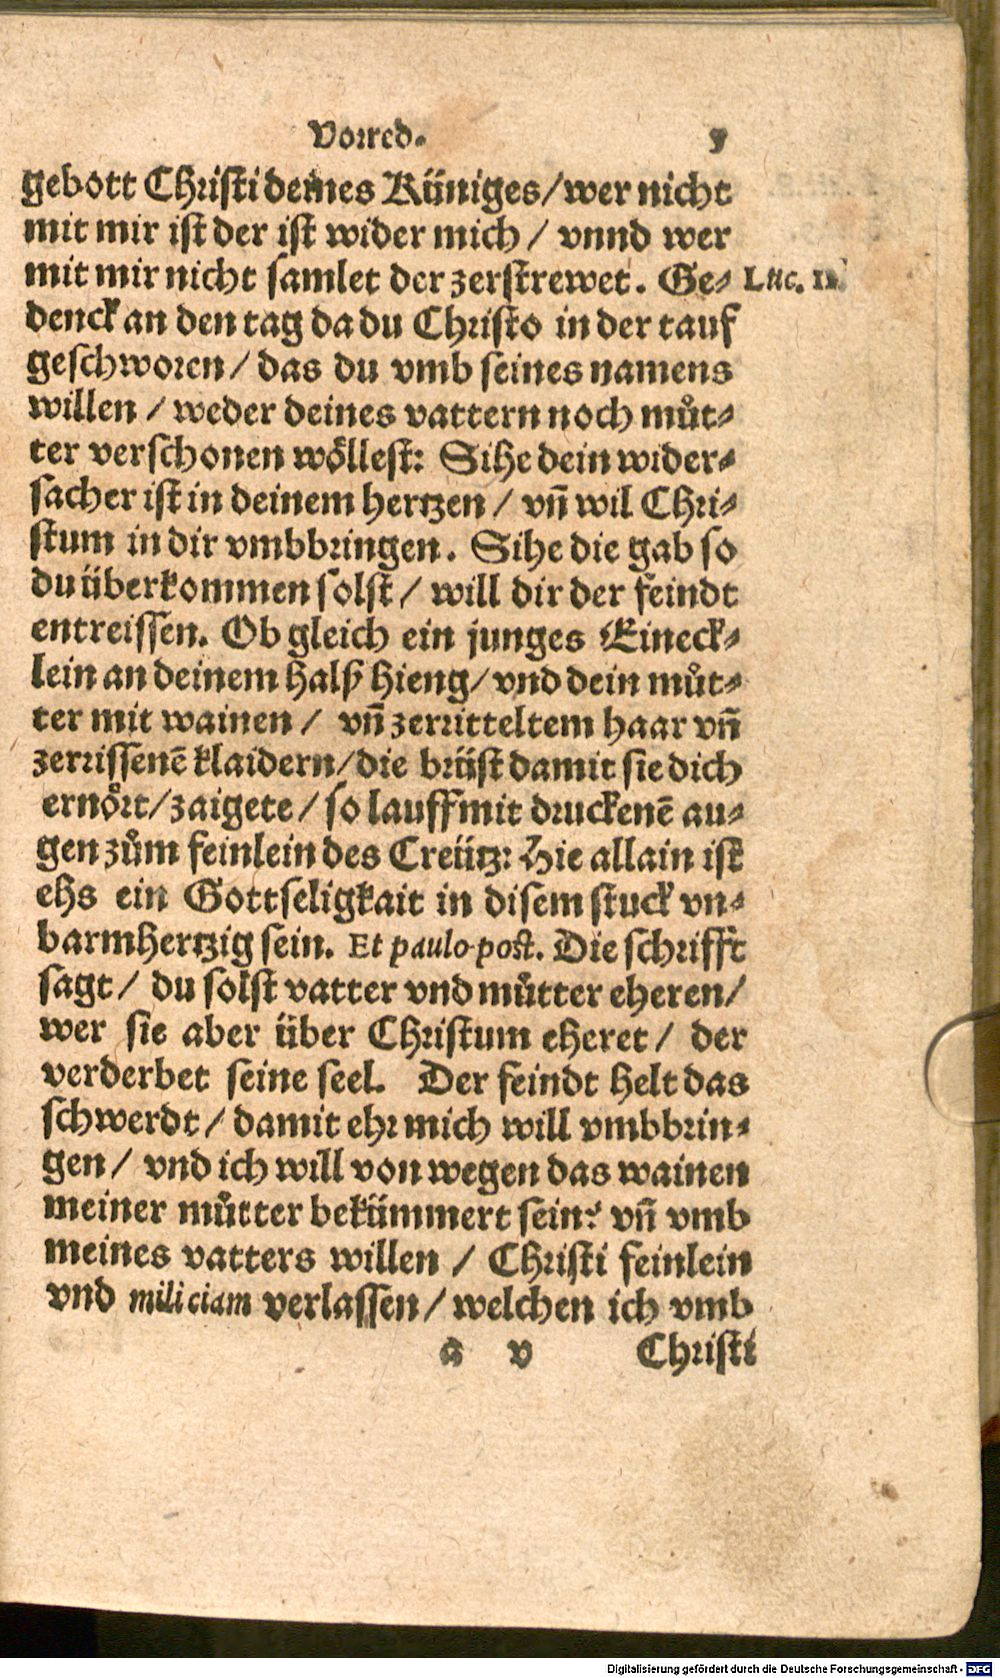 Vorred. 5
gebott Christi deines Küniges/ wer nicht
mit mir ist der ist wider mich / vnnd wer
mit mir nicht samlet der zerstrewet. Ge- Luc. 11.
denck an den tag da du Christo in der tauf
geschworen / das du vmb seines namens
willen / weder deines vattern noch můt-
ter verschonen wöllest: Sihe dein wider-
sacher ist in deinem hertzen / vñ wil Chri-
stum in dir vmbbringen. Sihe die gab so
du überkommen solst / will dir der feindt
entreissen. Ob gleich ein junges Eineck-
lein an deinem halß hieng/ vnd dein můt-
ter mit wainen / vñ zerritteltem haar vñ
zerrissenē klaidern/ die brüst damit sie dich
ernört/ zaigete / so lauff mit druckenē au-
gen zům feinlein des Creütz: Hie allain ist
ehs ein Gottseligkait in disem stuck vn-
barmhertzig sein. Et paulo post. Die schrifft
sagt / du solst vatter vnd můtter eheren/
wer sie aber über Christum eheret / der
verderbet seine seel. Der feindt helt das
schwerdt / damit ehr mich will vmbbrin-
gen / vnd ich will von wegen das wainen
meiner můtter bekümmert sein? vñ vmb
meines vatters willen / Christi feinlein
vnd miliciam verlassen / welchen ich vmb
a v Christi
Digitalisierung gefördert durch die Deutsche Forschungsgemeinschaft - DFG